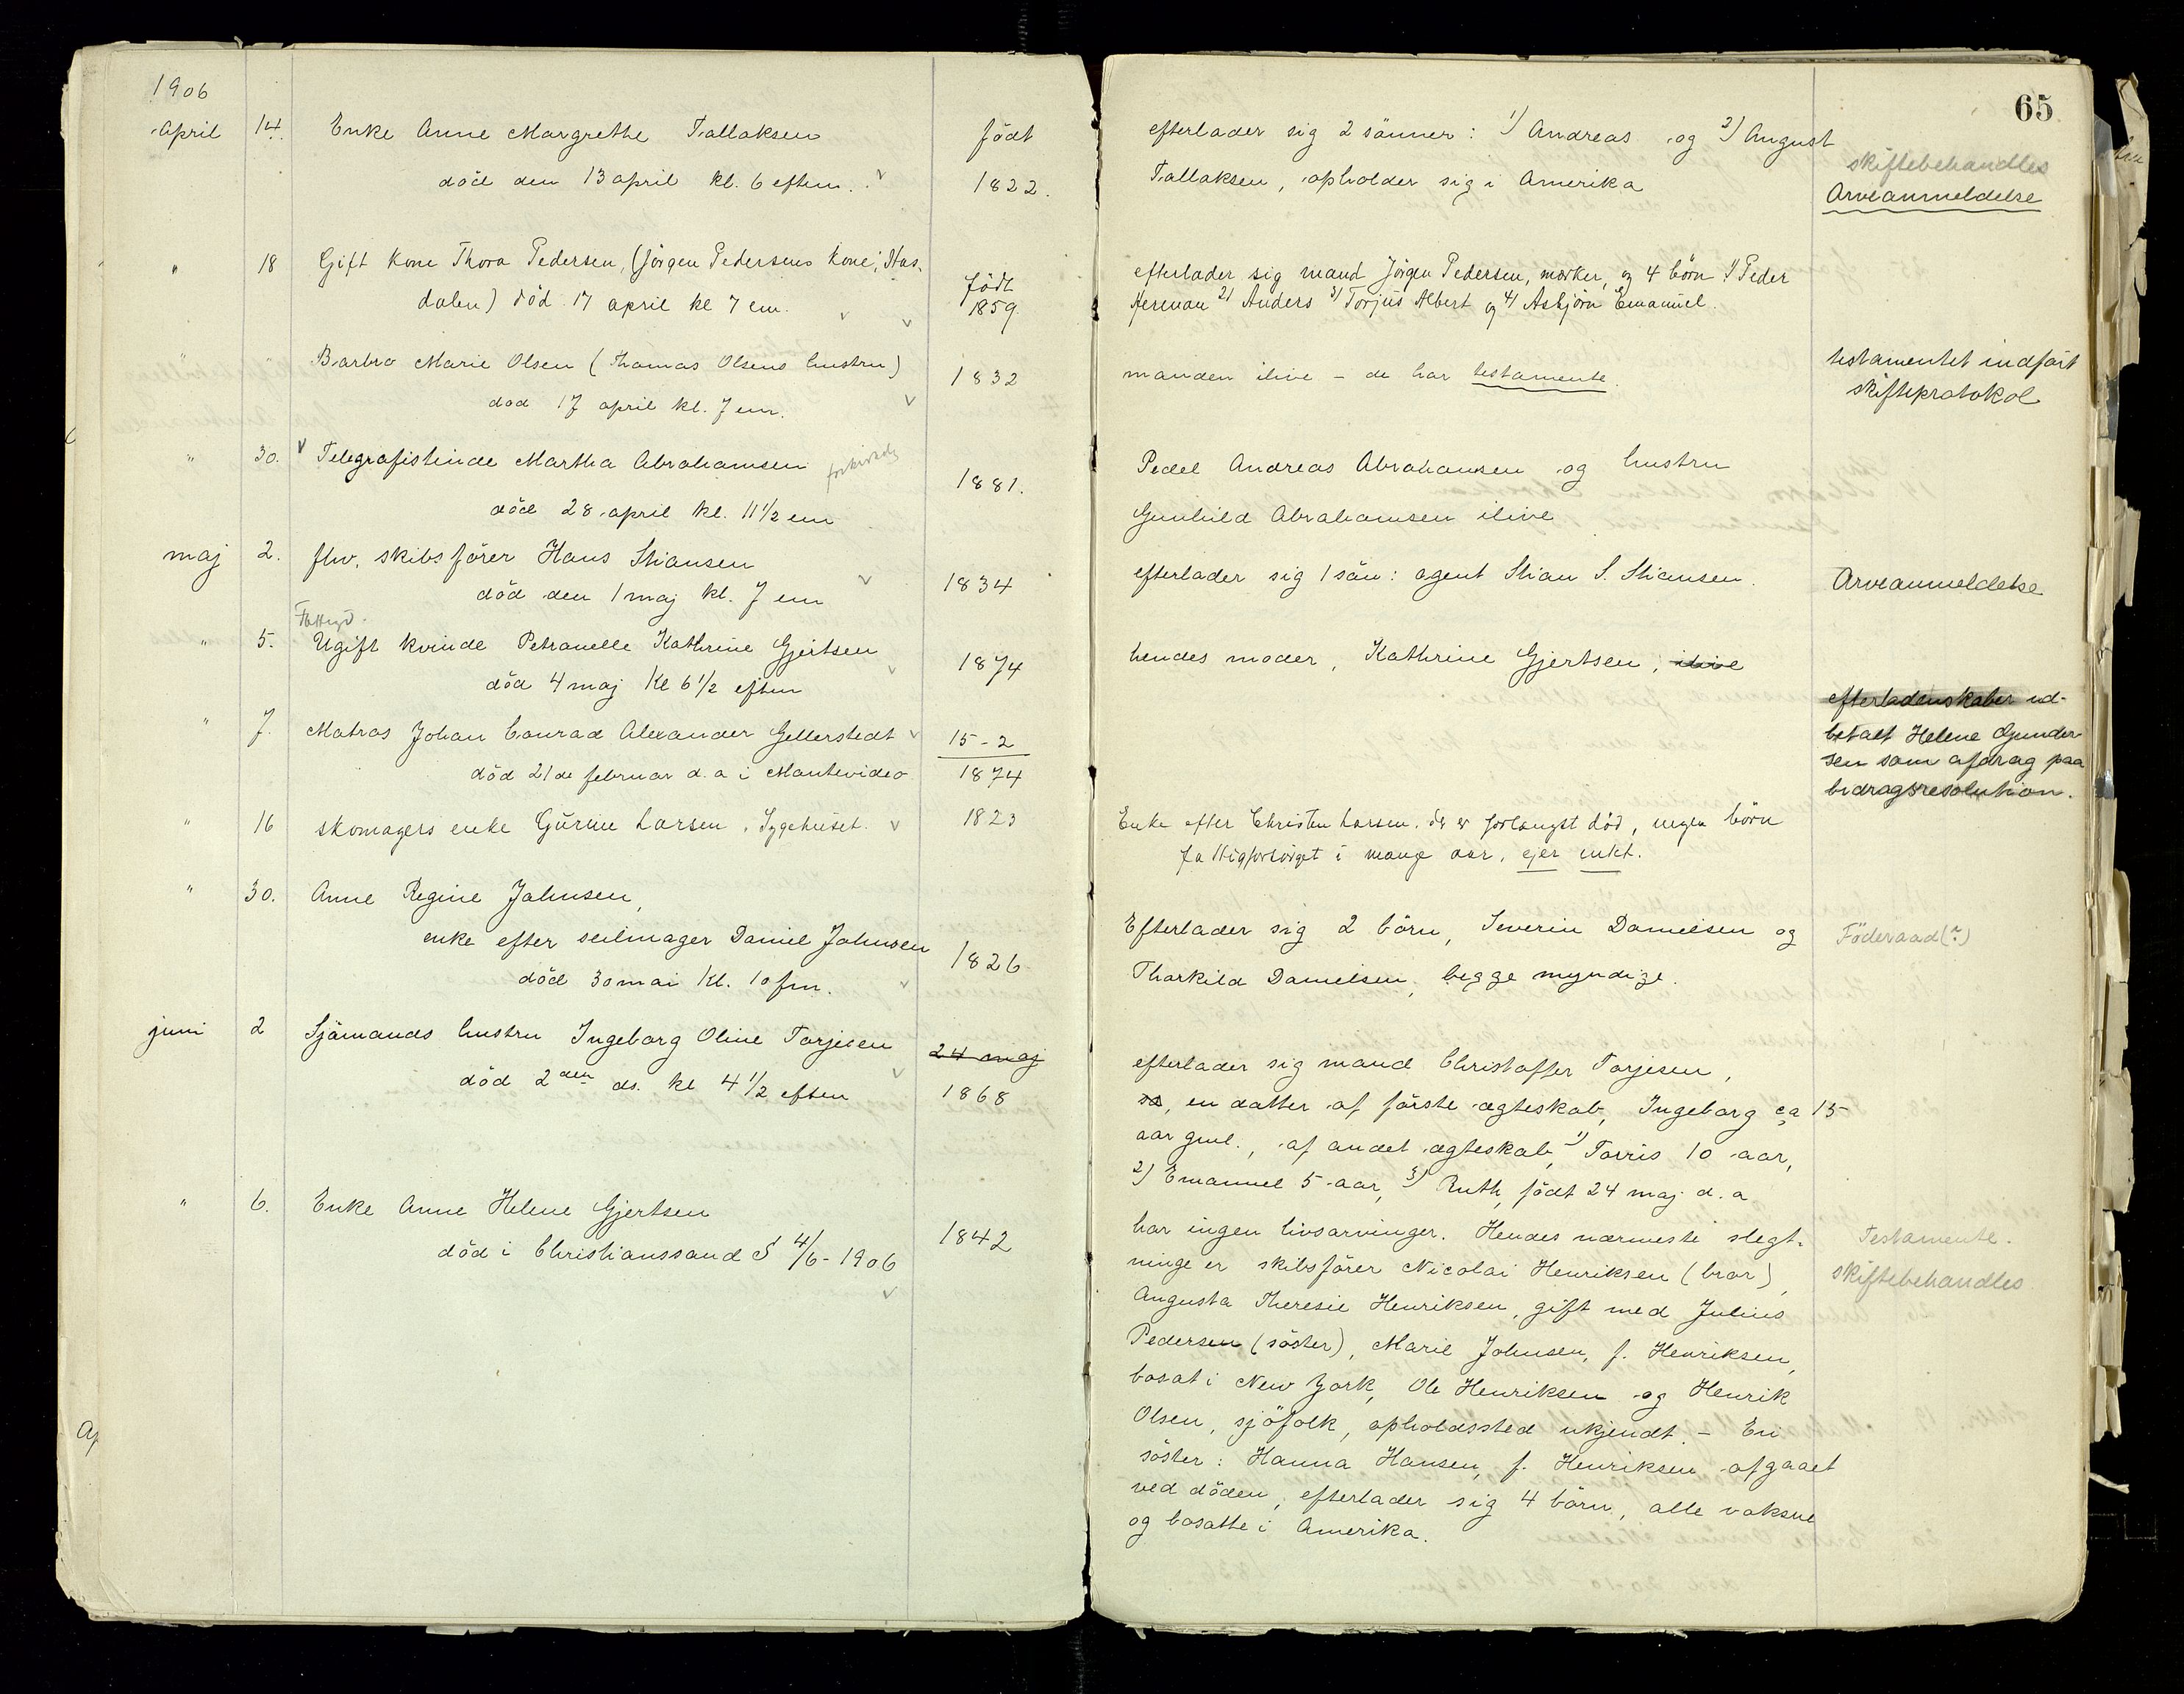 1906
65
April 14. Enke Anne Margrethe Tallaksen födt
död den 13 april kl. 6 eftem. 1822.
efterlader sig 2 sönner: 1) Andreas og 2) August
Tallaksen, opholder sig i Amerika
skiftebehandles
Arveanmeldelse
" 18 Gift kone Thora Pedersen, (Jörgen Pedersens kone, Stas-
dalen) död 17 april kl 7 em. födt 1859.
efterlader sig mand Jörgen Pedersen, og 4 börn 1) Peder
Herman 2) Anders 3) Torjus Albert og 4) Asbjörn Emanuel.
Barbro Marie Olsen (Thomas Olsens hustru) 1832
död 17 april kl. 7 em.
manden ilive – de har testamente.
testamentet indfört
skifteprotokol
" 30. Telegrafistinde Martha Abrahamsen 1881.
död 28 april kl. 11 1/2 em
Pedel Andreas Abrahamsen og hustru
Gunhild Abrahamsen ilive
maj 2. fhv. skibsförer Hans Stiansen 1834
död den 1 maj kl. 7 em
efterlader sig 1 sön: agent Stian S. Stiansen.
Arveanmeldelse
Fattigd.
" 5. Ugift kvinde Petranelle Kathrine Gjertsen 1874
död 4 maj Kl 6 1/2 eftm
hendes moder, Kathrine Gjertsen, ilive
" 7. Matros Johan Conrad Alexander Gellerstedt 15-2
död 21de februar d.a i Montevideo 1874
efterladenskaber ud-
betalt Helene Gunder-
sen som afdrag paa
bidragsresolution.
" 16 skomagers enke Gurine Larsen, Sygehuset. 1823
Enke efter Christen Larsen, der er forlængst död, ingen börn
fattigforsörget i mange aar, ejer intet.
" 30. Anne Regine Johnsen,
enke efter seilmager Daniel Johnsen 1826
död 30 mai Kl. 10 fm.
Efterlader sig 2 börn, Severin Danielsen og
Thorkild Danielsen, begge myndige.
Föderaad(?)
juni 2 Sjömands hustru Ingeborg Oline Torjesen 24 maj
död 2den ds. kl 4 1/2 eftem 1868
efterlader sig mand Christoffer Torjesen,
en datter af förste ægteskab, Ingeborg ca 15
aar gml., af andet ægteskab, 1) Torris 10 aar,
2) Emanuel 5 aar, 3) Ruth, födt 24 maj d. a
" 6. Enke Anne Helene Gjertsen 1842
död i Christianssand S 4/6-1906
har ingen livsarvinger. Hendes nærmeste slegt-
ninge er skibsförer Nicolai Henriksen (bror),
Augusta Theresie Henriksen, gift med Julius
Pedersen (söster), Marie Johnsen, f. Henriksen,
bosat i New York, Ole Henriksen og Henrik
Olsen, sjöfolk, opholdssted ukjendt. – En
söster: Hanna Hansen, f. Henriksen afgaaet
ved döden, efterlader sig 4 börn, alle voksne
og bosatte i Amerika.
Testamente.
skiftebehandles.